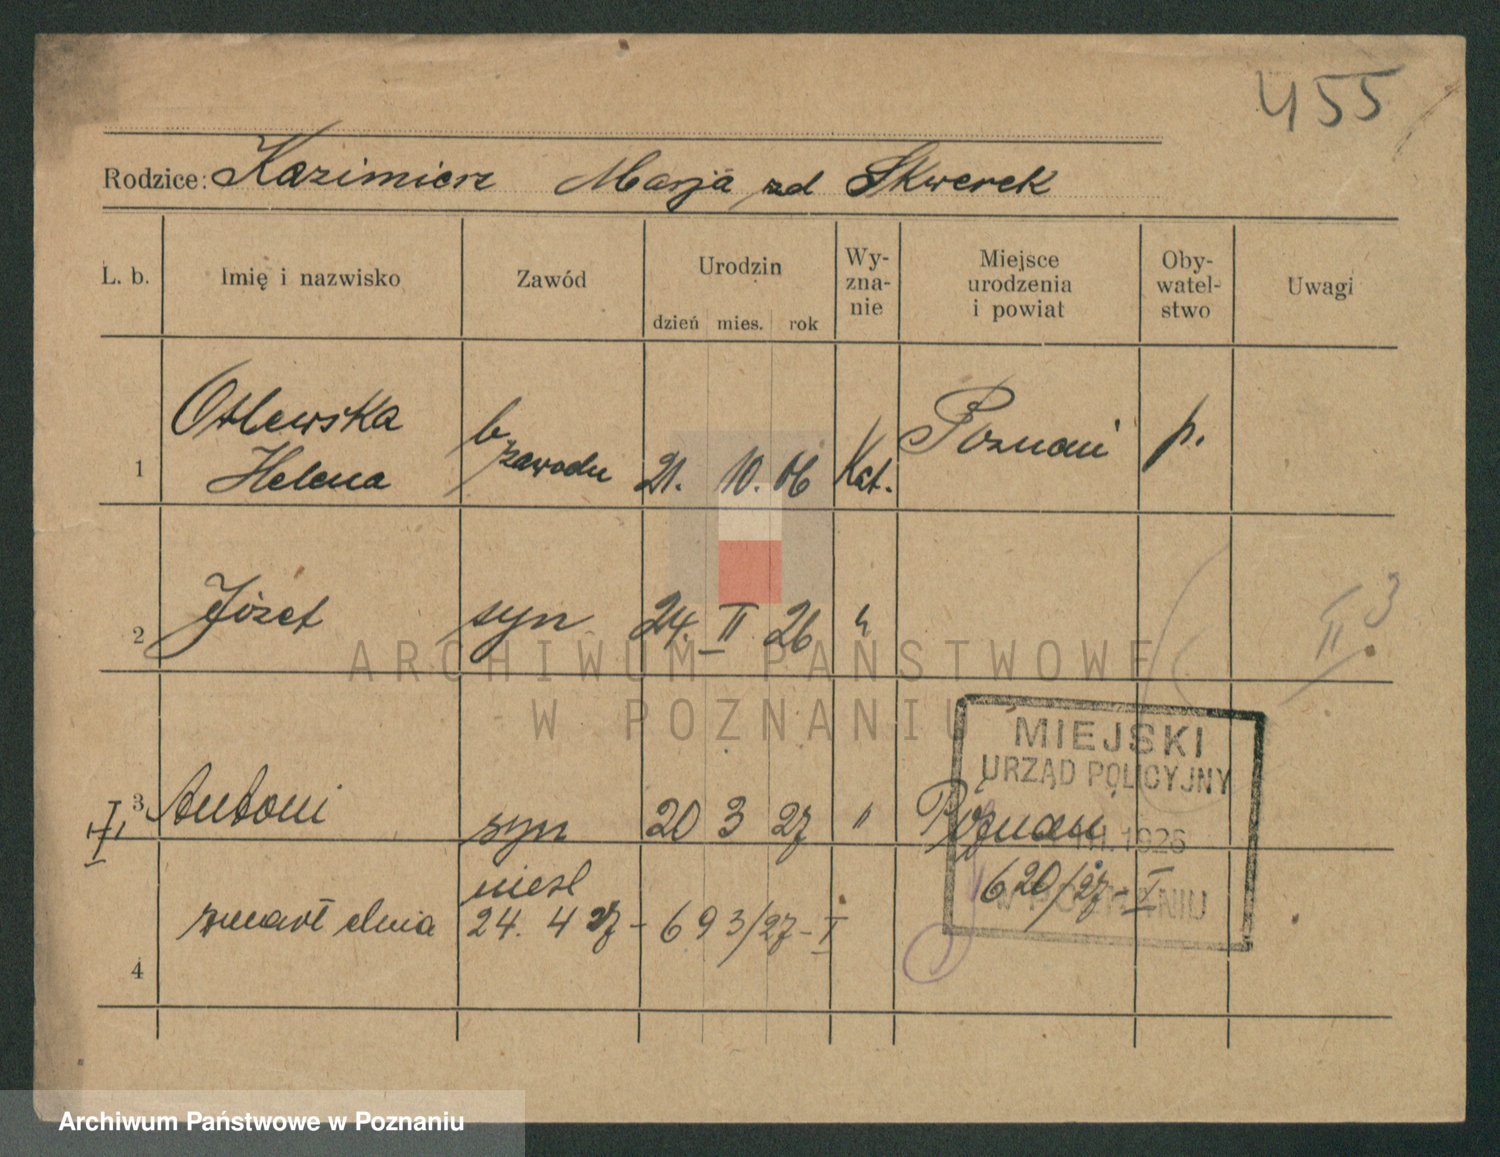 455
Rodzice: Kazimierz Marja zd Skwerek
L. b. Imię i nazwisko Zawód Urodzin dzień mies. rok Wy-zna-nie Miejsce urodzenia i powiat Oby-watel-stwo Uwagi
1 Otlewska Helena b zawodu 21. 10. 06 Kat. Poznań p.
2 Józef syn 24. II 26 "
II 3
ARCHIWUM PAŃSTWOWE
W POZNANIU
MIEJSKI
URZĄD POLICYJNY
3 Antoni syn 20 3 27 " Poznań
III. 1926
niesl 620/27-I
W POZNANIU
zmarł dnia 24. 4 27 - 693/27-I
4
Archiwum Państwowe w Poznaniu